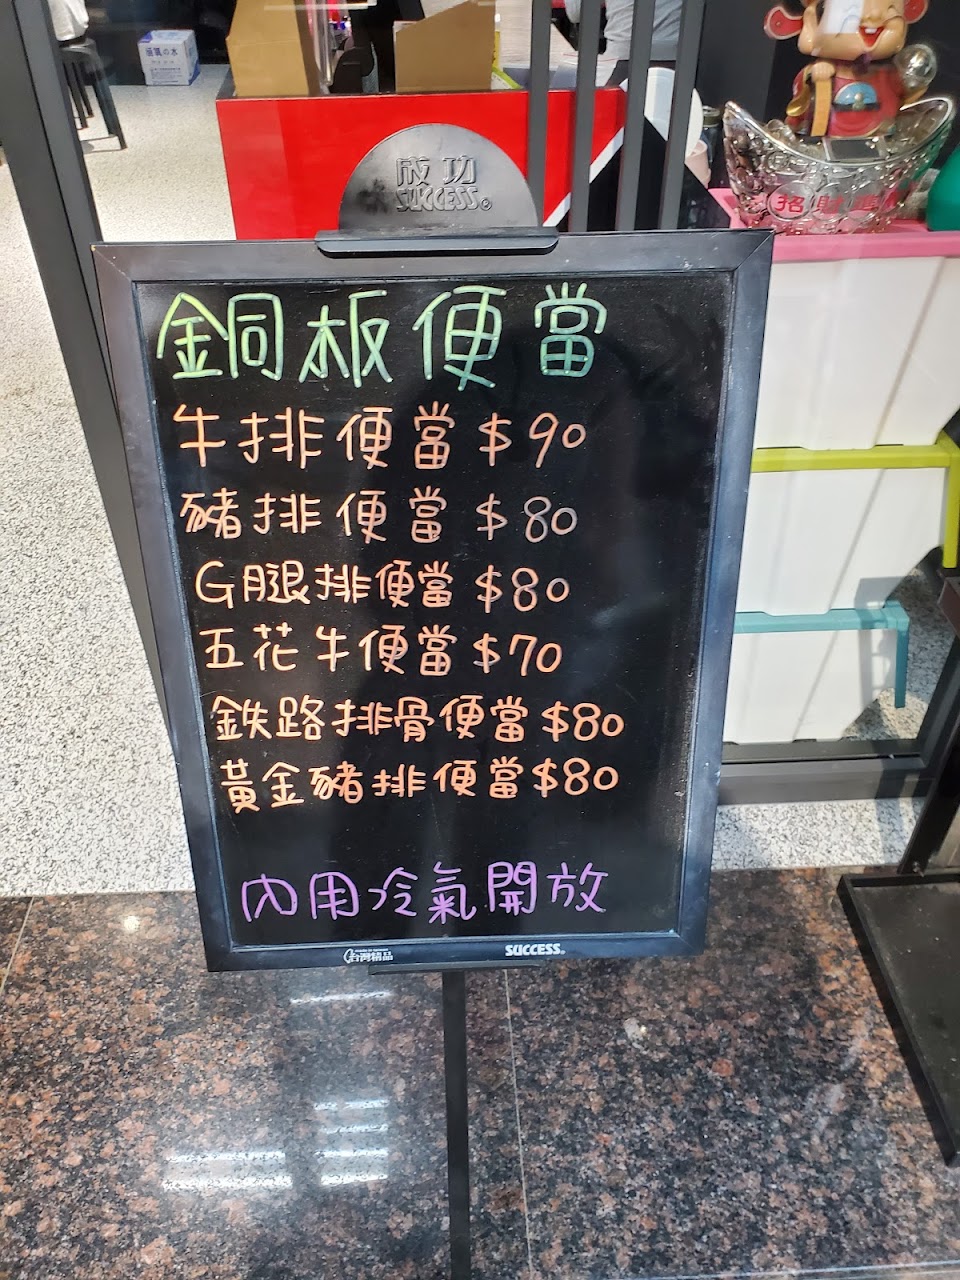 成功
SUCCESS®
招財進
銅板便當
牛排便當$90
豬排便當$80
G腿排便當$80
五花牛便當$70
鉄路排骨便當$80
黃金豬排便當$80
內用冷氣開放
SUCCESS®